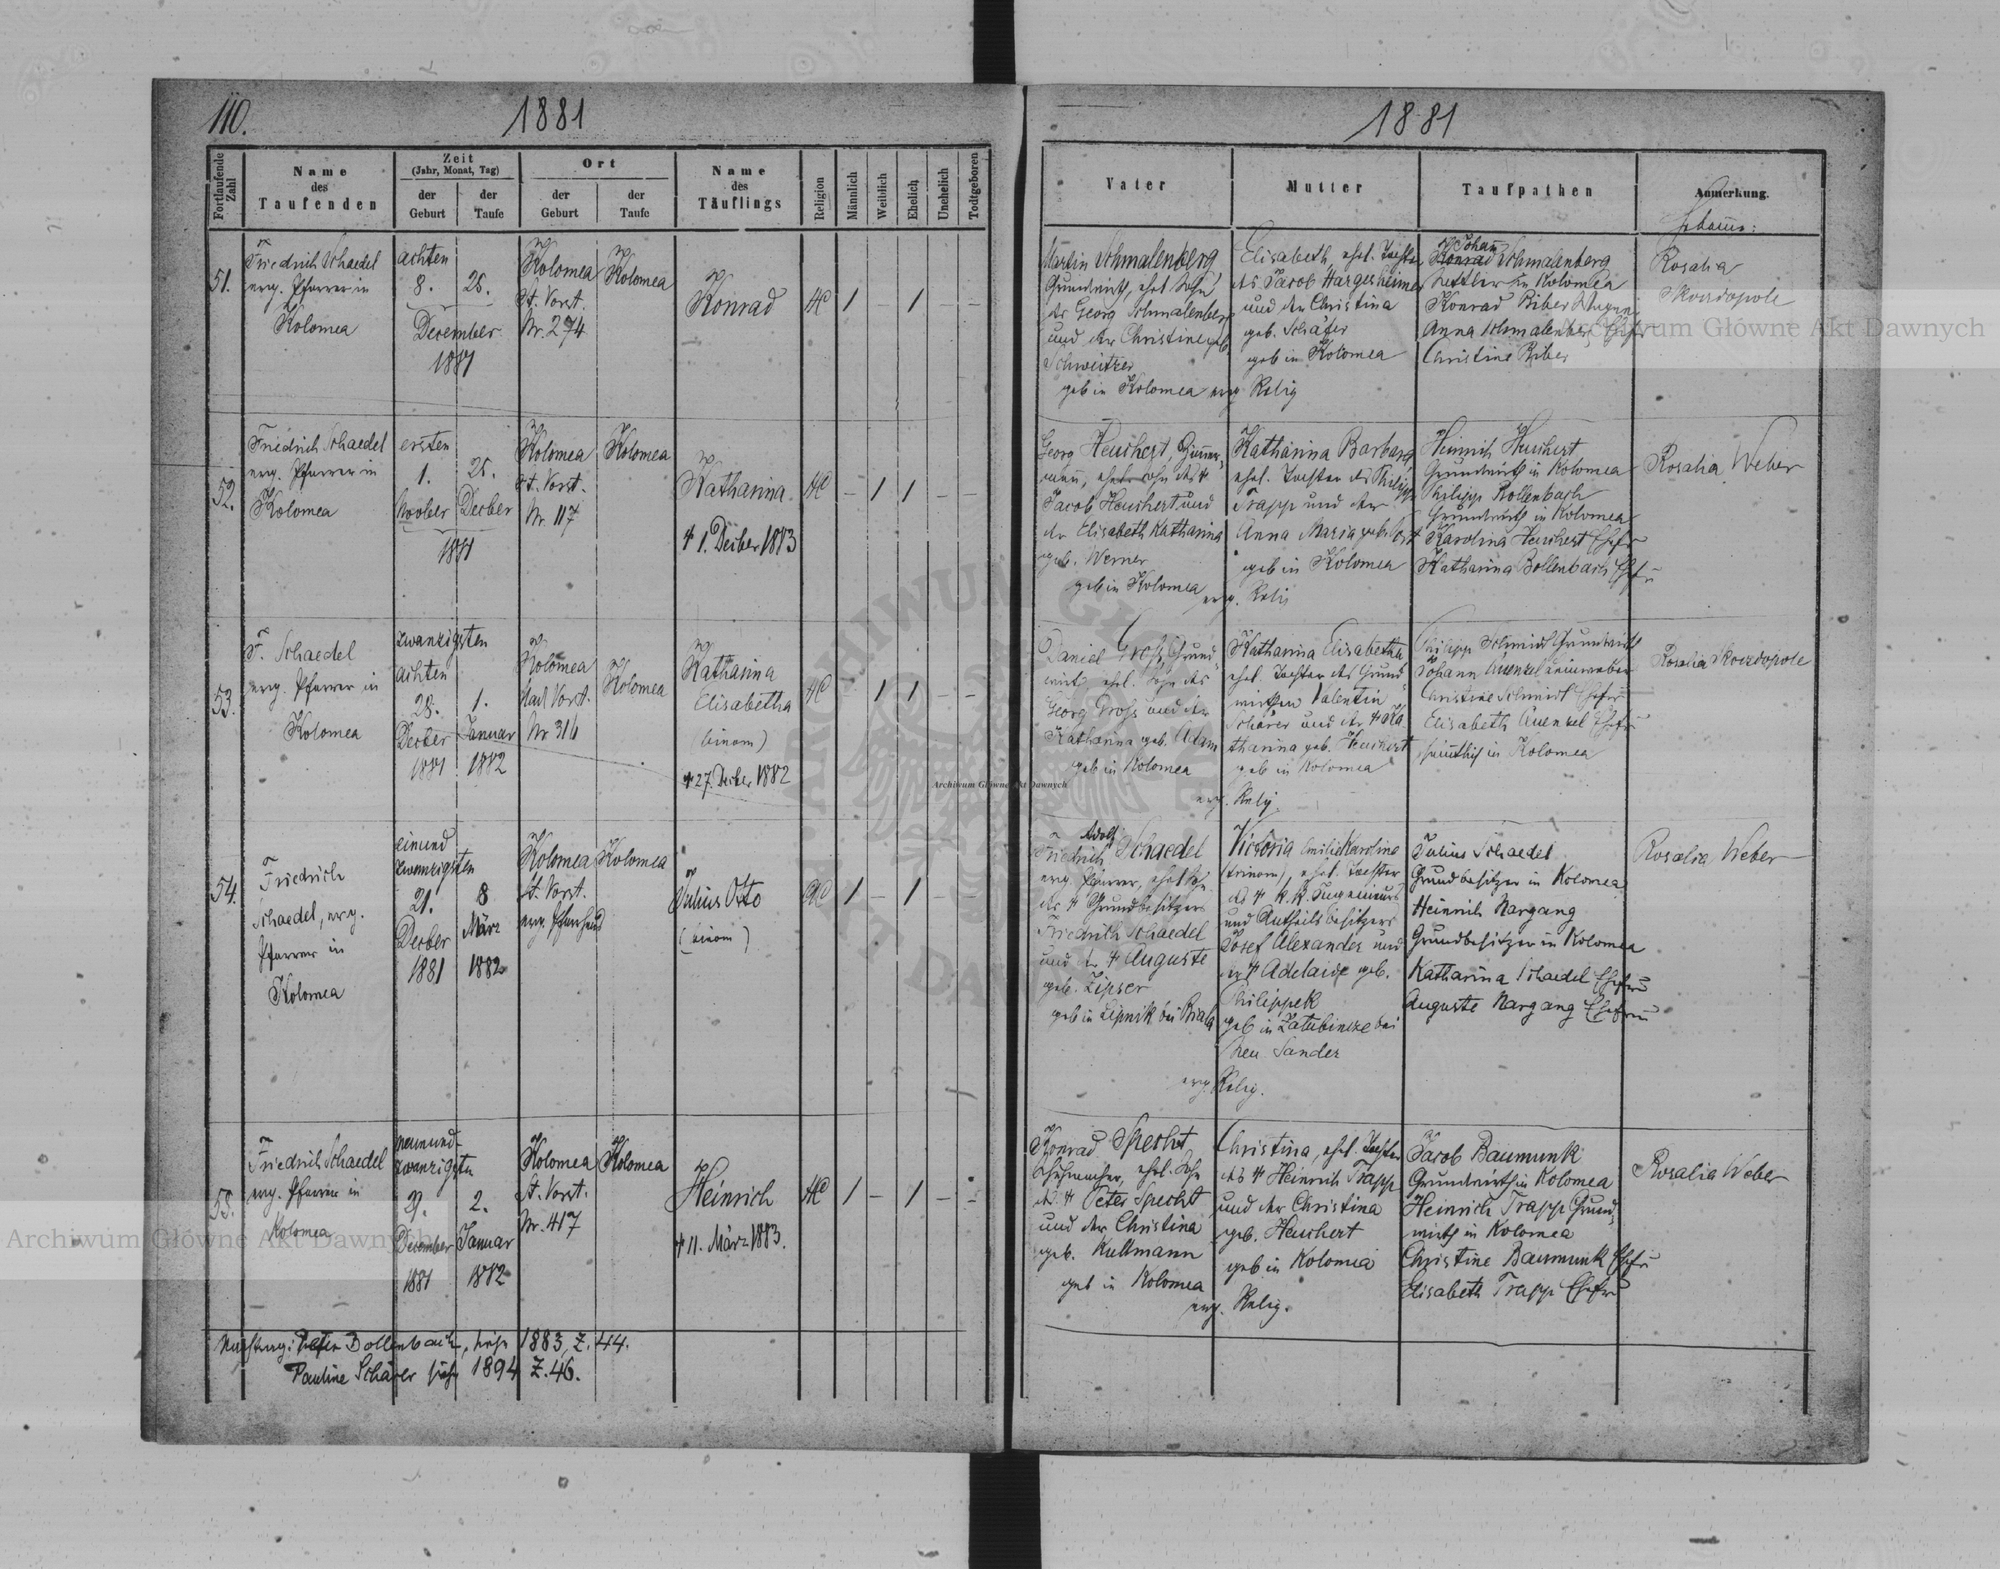 110.
1881
Fortlaufende Zahl
Name
des
Taufenden
Zeit
(Jahr, Monat, Tag)
der
Geburt
der
Taufe
Ort
der
Geburt
der
Taufe
Name
des
Täuflings
Religion
Männlich
Weiblich
Ehelich
Unehelich
Todtgeboren
51.
Friedrich Schaedel
evg. Pfarrer in
Kolomea
achten
8.
December
1881
25.
Kolomea
St. Vorst.
Nr. 274
Kolomea
Konrad
AC
52.
Friedrich Schaedel
evg. Pfarrer in
Kolomea
ersten
1.
Novber
25.
Decber
1881
Kolomea
St. Vorst.
Nr. 117
Kolomea
Katharina
† 1. Decber 1883
AC
53.
F. Schaedel
evg. Pfarrer in
Kolomea
zwanzigsten
achten
28.
Decber
1881
1.
Januar
1882
Kolomea
Nr 316
Kolomea
Katharina
Elisabetha
(binom)
† 27. Decber 1882
AC
54.
Friedrich
Schaedel, evg.
Pfarrer in
Kolomea
einund
zwanzigsten
21.
Decber
1881
8
März
1882
Kolomea
St. Vorst.
evg. Pfarrhaus
Kolomea
Julius Otto
(binom)
AC
55.
Friedrich Schaedel
evg. Pfarrer in
Kolomea
neunund-
zwanzigsten
29.
December
1881
2.
Januar
1882
Kolomea
St. Vorst.
Nr. 417
Kolomea
Heinrich
† 11. März 1883.
AC
Nachtrag: Peter Bollenbach, siehe 1883, Z. 44.
Pauline Schärer siehe 1894 Z. 46.
1881
Vater
Mutter
Taufpathen
Anmerkung.
Hebamme:
Martin Schmalenberg
Grundwirth, ehel. Sohn
des Georg Schmalenberg
und der Christine geb.
Schweitzer
geb in Kolomea evg. Relig
Elisabeth, ehel. Tochter
des Jacob Hargesheimer
und der Christina
geb. Schäfer
geb in Kolomea
Johan
Konrad Schmalenberg
in Kolomea
Konrad Biber
Anna Schmalenberg Ehefr
Christine Biber
Rosalia
Skordopole
Georg Heuchert, Zimmer-
mann, ehel. Sohn des †
Jacob Heuchert und
der Elisabeth Katharina
geb. Werner
geb in Kolomea
evg. Relig
Katharina Barbara
ehel. Tochter des Philipp
Trapp und der
Anna Maria geb.
geb in Kolomea
Heinrich Heuchert
Grundwirth in Kolomea
Philipp Bollenbach
Grundwirth in Kolomea
Karolina Heuchert Ehefr
Katharina Bollenbach Ehefr
Rosalia Weber
Daniel Gross, Grund-
wirth, ehel. Sohn des
Georg Gross und der
Katharina geb. Adam
geb in Kolomea
evg. Relig.
Katharina Elisabetha
ehel. Tochter des Grund-
wirthen Valentin
Schärer und der † Ka
tharina geb. Heuchert
geb in Kolomea
Philipp Schmidt Grundwirth
Johann Kuenzel
Christine Schmidt Ehefr
Elisabeth Kuenzel Ehefr
sämmtlich in Kolomea
Rosalia Skordopole
Adolf
Friedrich Schaedel
evg. Pfarrer, ehel. Sohn
des † Grundbesitzers
Friedrich Schaedel
und der † Auguste
geb. Zipser
geb in Lipnik bei Biala
Victoria Emilie Karoline
(trinom), ehel. Tochter
des † K. K. Ingenieurs
und Antheilsbesitzers
Josef Alexander und
der † Adelaide geb.
Philippek
geb in Zalubincze bei
Neu Sandez
evg. Relig.
Julius Schaedel
Grundbesitzer in Kolomea
Heinrich Nargang
Grundbesitzer in Kolomea
Katharina Schaedel Ehefr
Auguste Nargang Ehefrau
Rosalia Weber
Konrad Specht
Schuhmacher, ehel. Sohn
des † Peter Specht
und der Christina
geb. Kullmann
geb in Kolomea
evg. Relig.
Christina, ehel. Tochter
des † Heinrich Trapp
und der Christina
geb. Heuchert
geb in Kolomea
Jacob Baumunk
Grundwirth in Kolomea
Heinrich Trapp Grund-
wirth in Kolomea
Christine Baumunk Ehefr
Elisabeth Trapp Ehefr
Rosalia Weber
Archiwum Główne Akt Dawnych
Archiwum Główne Akt Dawnych
Archiwum Główne Akt Dawnych